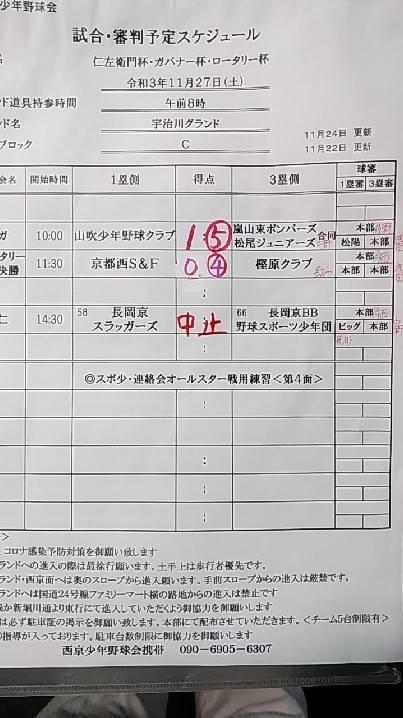 少年野球会
試合・審判予定スケジュール
名 仁左衛門杯・ガバナー杯・ロータリー杯
令和3年11月27日(土)
ンド道具持参時間 午前8時
ンド名 宇治川グランド 11月24日 更新
ブロック C 11月22日 更新
会名 開始時間 1塁側 得点 3塁側 球審
1塁審 3塁審
ガ 10:00 山吹少年野球クラブ 1:5 嵐山東ボンバーズ 松尾ジュニアーズ 合同 本部
松陽 本部
タリー 決勝 11:30 京都西S&F 0:4 樫原クラブ 本部
本部 本部
:
仁 14:30 58 長岡京 スラッガーズ 中止 66 長岡京BB 野球スポーツ少年団 本部
ビッグ 本部
:
◎スポ少・連絡会オールスター戦用練習<第4面>
:
:
:
>
コロナ感染予防対策を御願い致します
ランドへの進入の際は最徐行願います。土手上は歩行者優先です。
ランド・西京面へは奥のスロープから進入願います。手前スロープからの進入は厳禁です。
ランドへは国道24号線ファミリーマート横の路地からの進入は禁止です
線か新堀川通より東行にて進入していただくよう御協力を御願いします
は必ず駐車証の掲示を御願い致します。本部にて配布させていただきます。<チーム5台制限有>
の指導が入っております。駐車台数制限に御協力を御願します
西京少年野球会携帯 090-6905-6307